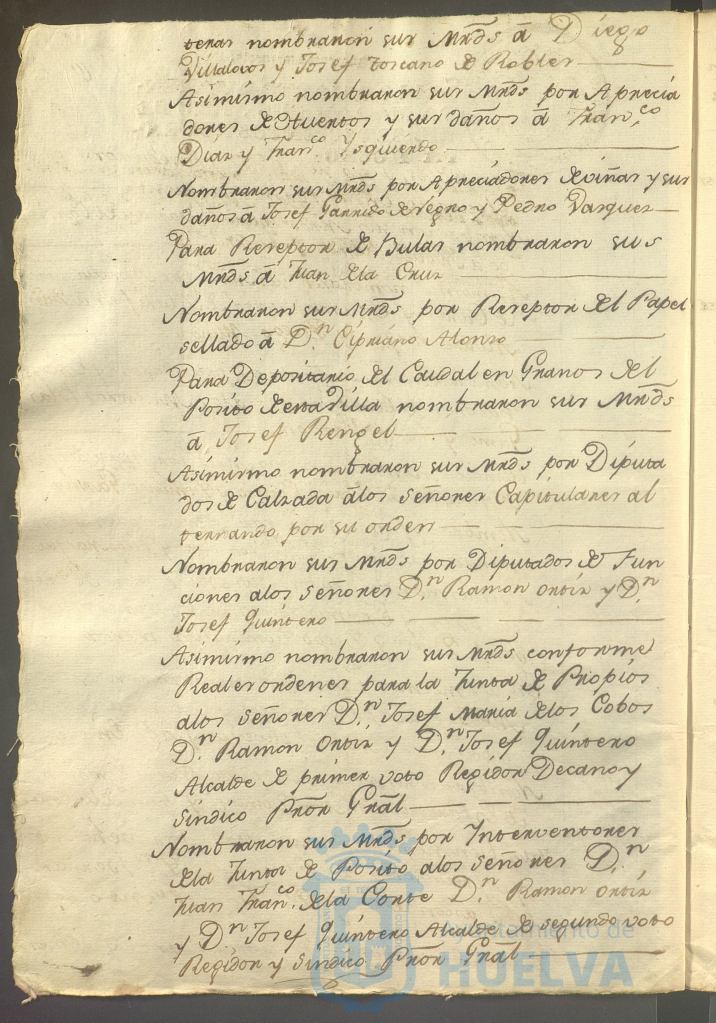 teras nombraron sus Mrds â Diego
Villalovos y Josef toscano de Robles
Asimismo nombraron sus Mrds por Aprecia
dores de Huertos y sus daños â Fran.co
Diaz y Fran.co Ysquierdo
Nombraron sus Mrds por Apreciadores de viñas y sus
daños â Josef Garrido de Negro y Pedro Vasquez
Para Reseptor de Bulas nombraron sus
Mrds â Juan de la Cruz
Nombraron sus Mrds por Reseptor del Papel
sellado â D.n Cipriano Alonso
Para Depositario del Caudal en Granos del
Posito de esta Villa nombraron sus Mrds
â Josef Rengel
Asimismo nombraron sus Mrds por Diputa
dos de Calzada âlos señores Capitulares al
ternando por su orden
Nombraron sus Mrds por Diputados de Fun
ciones alos señores D.n Ramon Ortiz y D.n
Josef Quintero
Asimismo nombraron sus Mrds conforme
Reales ordenes para la Junta de Propios
alos señores D.n Josef Maria de los Cobos
D.n Ramon Ortiz y D.n Josef Quintero
Alcalde de primer voto Regidor Decano y
Sindico Pror Gral
Nombraron sus Mrds por Interventores
de la Junta de Posito alos señores D.n
Juan Fran.co de la Corte D.n Ramon Ortiz
y D.n Josef Quintero Alcalde de segundo voto
Regidor y Sindico Pror Gral
Ayuntamiento de
HUELVA